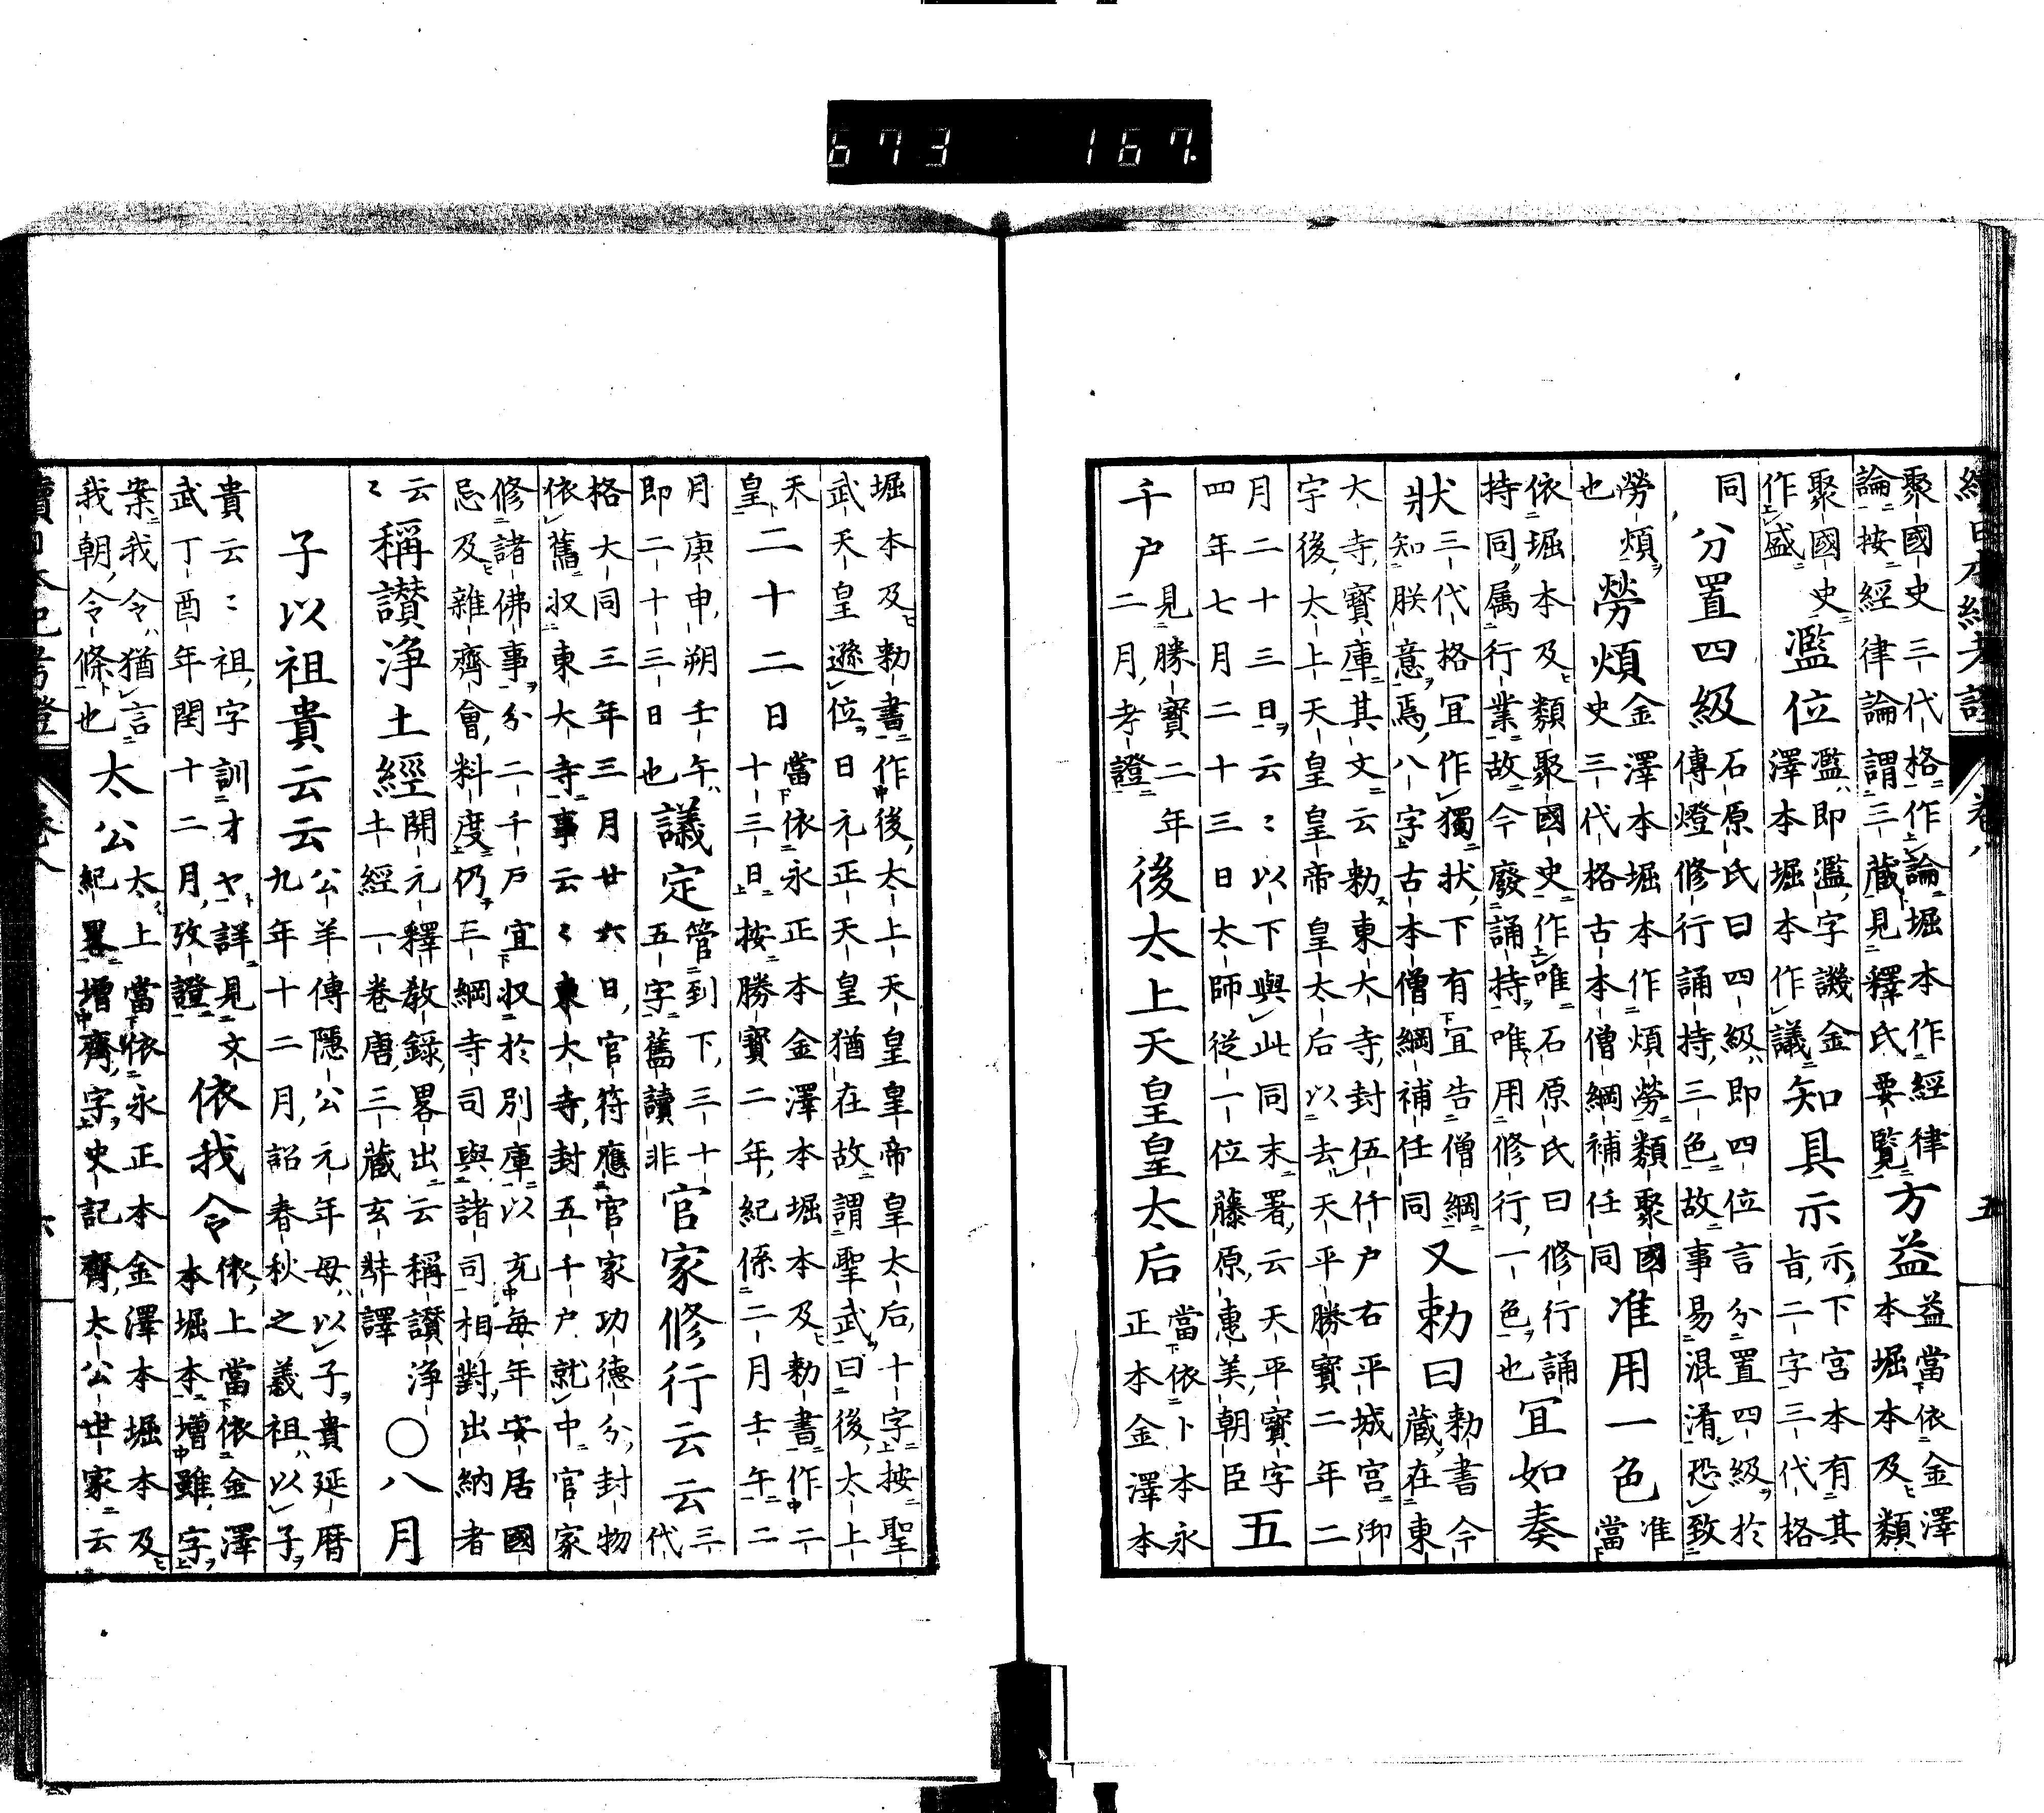 673 167.
續日本紀考證 卷八 五
聚國史三代格作論堀本作經律
論按經律論謂三藏見釋氏要覧方益益當依金澤本堀本及類
聚國史作盛濫位濫即濫字譏金澤本堀本作議知具示示下宮本有其旨二字三代格
同分置四級石原氏曰四級即四位言分置四級於傳燈修行誦持三色故事易混淆恐致
勞煩也勞煩金澤本堀本作煩勞類聚國史三代格古本僧綱補任同准用一色准當
依堀本及類聚國史作唯石原氏曰修行誦持同属行業故今廢誦持唯用修行一色也宜如奏
狀三代格冝作獨狀下有宜告僧綱知朕意焉八字古本僧綱補任同又勅曰勅書今藏在東
大寺寶庫其文云勅東大寺封伍仟户右平城宮御宇後太上天皇皇帝皇太后以去天平勝寶二年二
月二十三日云〻以下與此同末署云天平寶字四年七月二十三日太師從一位藤原惠美朝臣五
千户見勝寶二年二月考證後太上天皇皇太后當依卜本永正本金澤本
堀本及勅書作後太上天皇皇帝皇太后十字按聖
武天皇遜位日元正天皇猶在故謂聖武曰後太上
天皇二十二日當依永正本金澤本堀本及勅書作二十三日按勝寶二年紀係二月壬午二
月庚申朔壬午即二十三日也議定管到下三十五字舊讀非官家修行云云三代
格大同三年三月廿六日官符應官家功德分封物依舊収東大寺事云〻東大寺封五千户就中官家
修諸佛事分二千戸宜収於別庫以充每年安居國忌及雜齊會料度仍三綱寺司與諸司相對出納者
云〻稱讃淨土經開元釋教錄畧出云稱讃淨土經一卷唐三藏玄奘譯○八月
子以祖貴云云公羊傳隱公元年母以子貴延曆九年十二月詔春秋之義祖以子
貴云〻祖字訓オヤ詳見文武丁酉年閏十二月攷證依我令依上當依金澤本堀本增雖字
案我令猶言我朝令條也太公太上當依永正本金澤本堀本及紀畧增齊字史記齊太公世家云
續日本紀考證 卷八 六